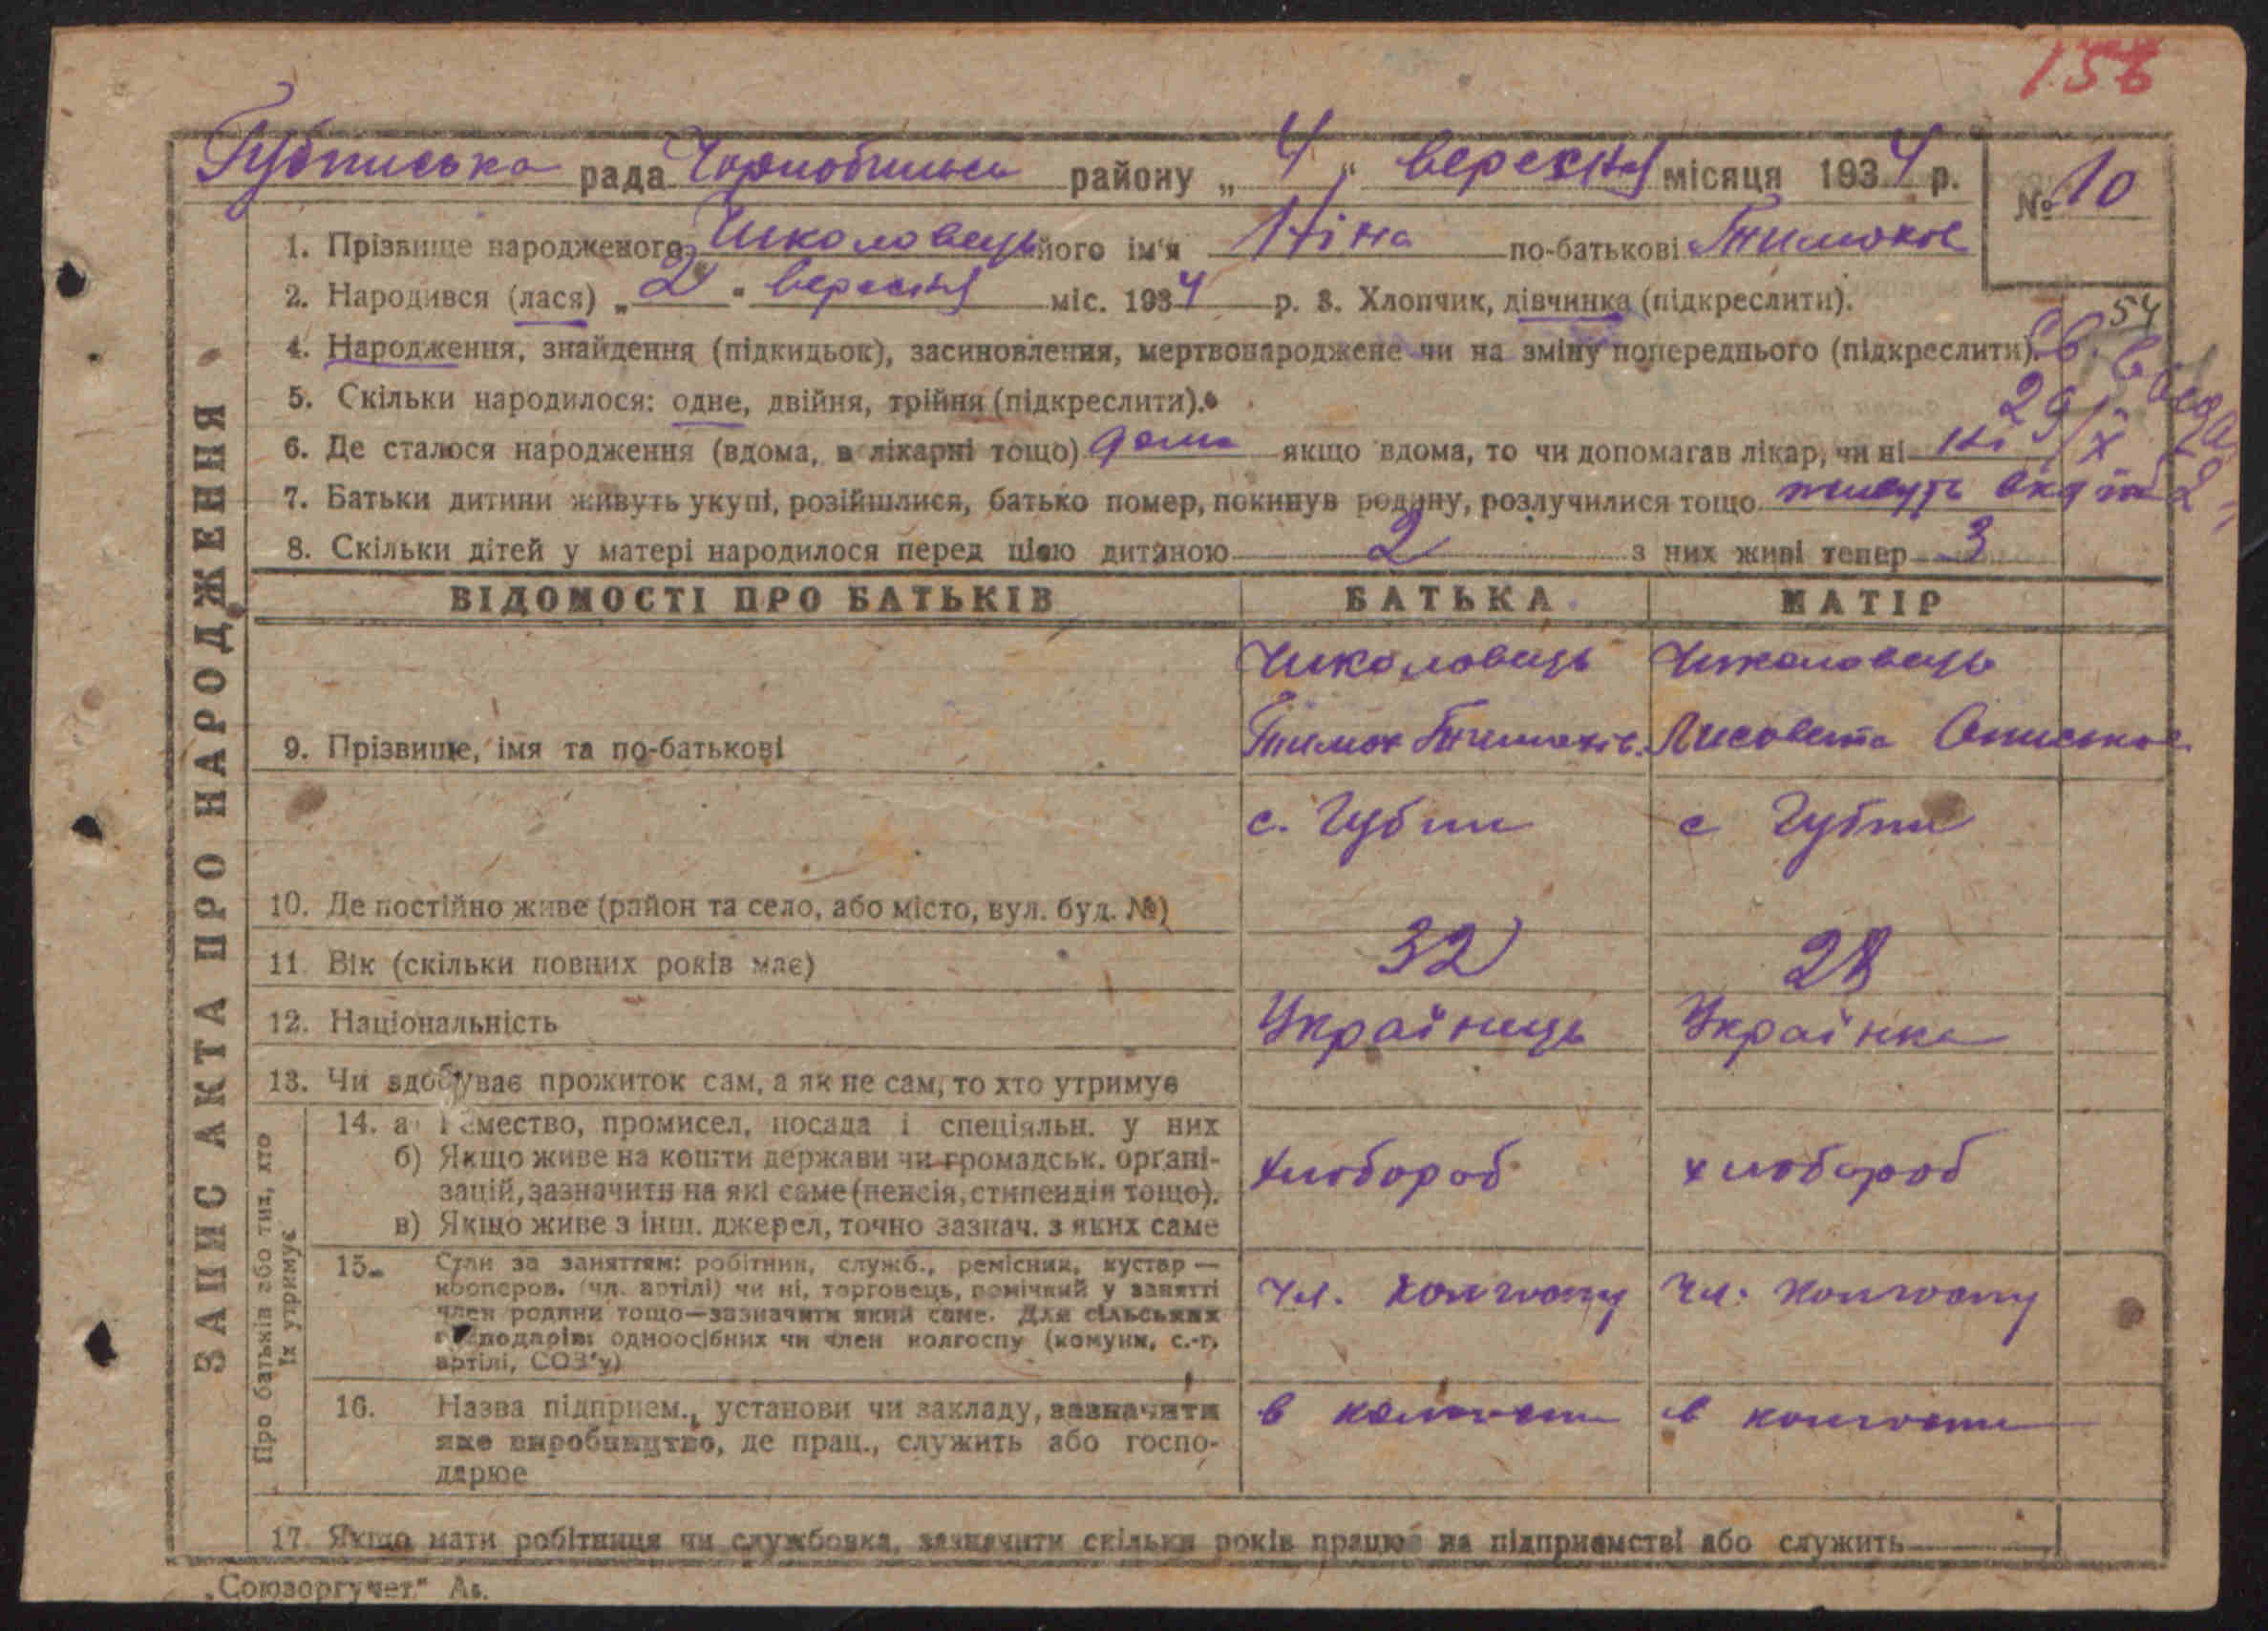 156
Губинська рада Чорнобильськ району „ 4 " вересня місяця 1934 р.
№ 10
1. Прізвище народженого Чиколовець його ім'я Ніна по-батькові Тимохов
2. Народився (лася) „ 2 " вересня міс. 1934 р. 3. Хлопчик, дівчинка (підкреслити).
54
4. Народження, знайдення (підкидьок), засиновлення, мертвонароджене чи на зміну попереднього (підкреслити).
5. Скільки народилося: одне, двійня, трійня (підкреслити).
29/X
6. Де сталося народження (вдома, в лікарні тощо) дома якщо вдома, то чи допомагав лікар, чи ні ні
7. Батьки дитини живуть укупі, розійшлися, батько помер, покинув родину, розлучилися тощо живуть
8. Скільки дітей у матері народилося перед цією дитиною 2 з них живі тепер 3
ВІДОМОСТІ ПРО БАТЬКІВ БАТЬКА МАТІР
Чиколовець Чиколовець
9. Прізвище, імя та по-батькові Тимох Тимохів. Лисовета Ониськов
с. Губин с Губин
10. Де постійно живе (район та село, або місто, вул. буд. №)
11. Вік (скільки повних років має) 32 28
12. Національність Українець Українка
13. Чи здобуває прожиток сам, а як не сам, то хто утримує
14. а) Ремество, промисел, посада і спеціяльн. у них
б) Якщо живе на кошти держави чи громадськ. органі-
зацій, зазначити на які саме (пенсія, стипендія тощо). хлібороб хлібороб
в) Якщо живе з інш. джерел, точно зазнач. з яких саме
15. Стан за заняттям: робітник, служб., ремісник, кустар —
кооперов. (чл. артілі) чи ні, торговець, помічний у занятті
член родини тощо—зазначити який саме. Для сільських
господарів: одноосібних чи член колгоспу (комуни, с.-г.
артілі, СОЗ'у)
чл. колгоспу чл. колгоспу
16. Назва підприєм., установи чи закладу, зазначити
яке виробництво, де прац., служить або госпо-
дарює
в колгоспі в колгоспі
17. Якщо мати робітниця чи службовка, зазначити скільки років працює на підприємстві або служить
ЗАПИС АКТА ПРО НАРОДЖЕННЯ
Про батьків або тих, хто
їх утримує
„Союзоргучет"